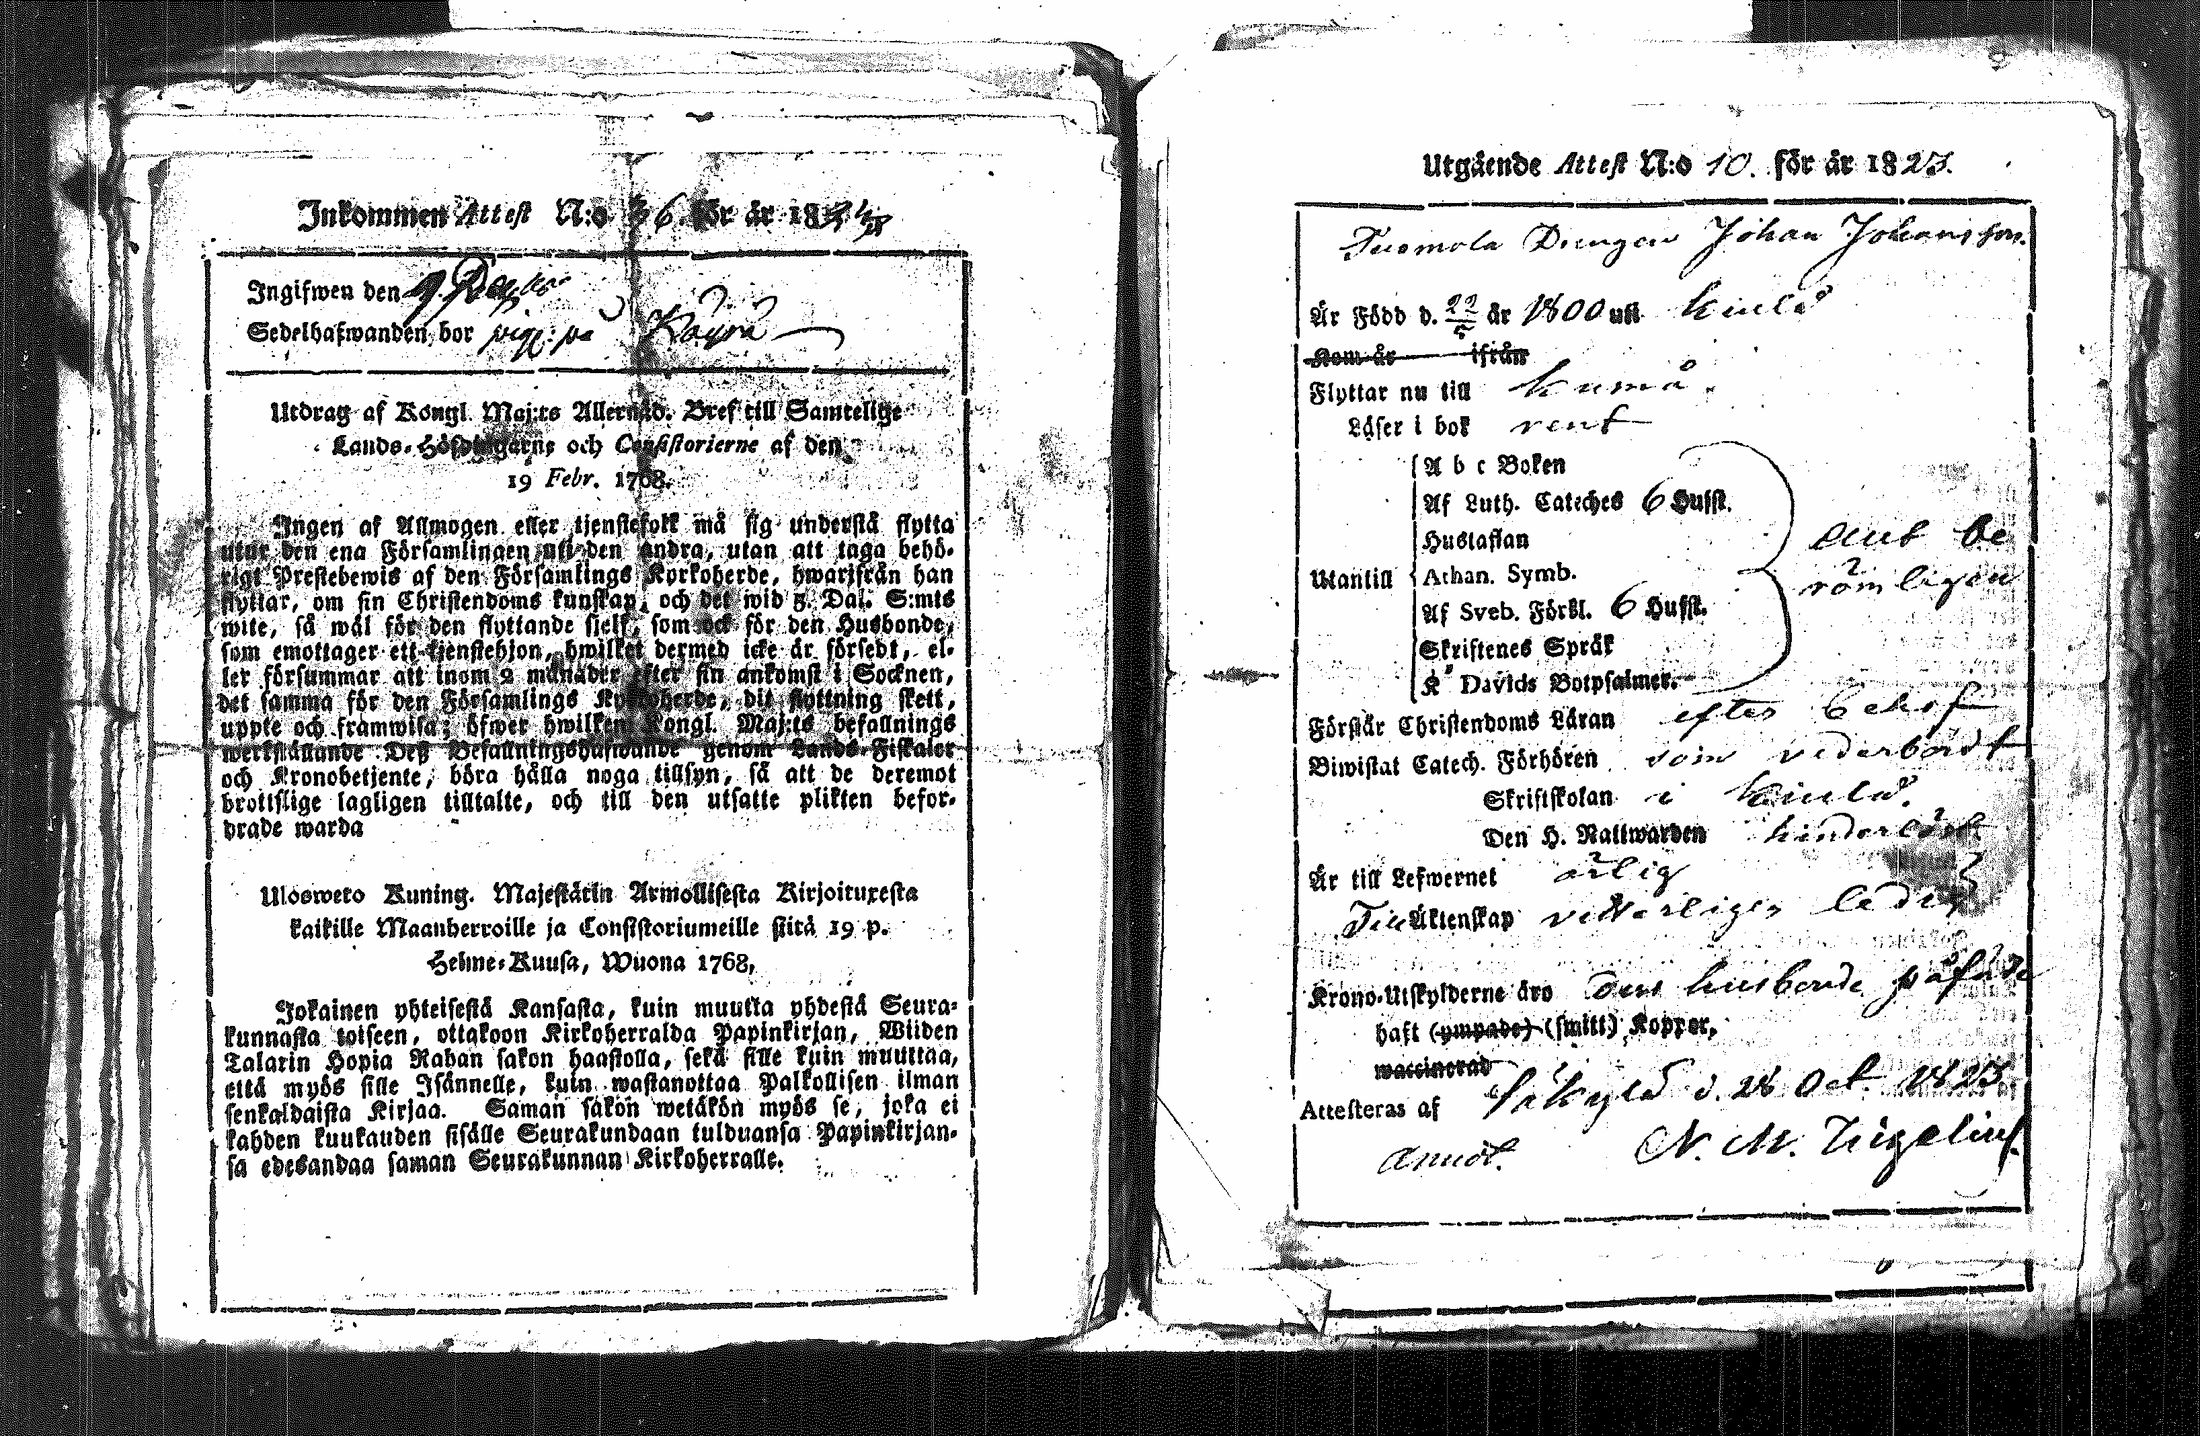 Inkommen Attest N:o 36 för år 18
Ingifwen den 9.
Sedelhafwanden bor på Käyrä
Utdrag af Kongl. Maj:ts Allernåd. Bref till Samtelige
Lands-Höfdingarne och Consistorierne af den
19 Febr. 1768.
Ingen af Allmogen eller tjenstefolk må sig understå flytta
utur den ena Församlingen uti den andra, utan att taga behö-
rigt Prestebewis af den Församlings Kyrkoherde, hwarifrån han
flyttar, om sin Christendoms kunskap, och det wid 5. Dal. S:mts
wite, så wäl för den flyttande sjelf, som ock för den Husbonde,
som emottager ett tjenstehjon, hwilket dermed icke är försedt, el-
ler försummar att inom 2 månader efter sin ankomst i Socknen,
det samma för den Församlings Kyrkoherde, dit flyttning skett,
uppte och framwisa; öfwer hwilken Kongl. Maj:ts befallnings
werkställande Deß Befallningshafwande genom Lands-Fiskaler
och Kronobetjente, böra hålla noga tillsyn, så att de deremot
brottslige lagligen tilltalte, och till den utsatte plikten befor-
drade warda
Ulosweto Kuning. Majestätin Armollisesta Kirjoituxesta
kaikille Maanherroille ja Consistoriumeille siitä 19 p.
Helme-Kuusa, Wuona 1768,
Jokainen yhteisestä Kansasta, kuin muutta yhdestä Seura-
kunnasta toiseen, ottakoon Kirkoherralda Papinkirjan, Wiiden
Talarin Hopia Rahan sakon haastolla, sekä sille kuin muuttaa,
että myös sille Isännelle, kuin wastanottaa Palkollisen ilman
senkaldaista Kirjaa. Saman sakon wetäkön myös se, joka ei
kahden kuukauden sisälle Seurakundaan tulduansa Papinkirjan-
sa edesandaa saman Seurakunnan Kirkoherralle.
Utgående Attest N:o 10. för år 1823.
Tuomola Drengen Johan Johansson.
Är Född d. 22/5 år 1800 uti Kiulo
Kom år ifrån
Flyttar nu till Kumå.
Läser i bok rent
A b c Boken
Af Luth. Cateches 6 Hufst.
Hustaflan
Utantill Athan. Symb.
Af Sveb. Förkl. 6 Hufst.
Skriftenes Språk
K. Davids Botpsalmer.
allt be
römligen
Förstår Christendoms Läran efter behof
Biwistat Catech. Förhören som vederbördt
Skriftskolan i Kiulo.
Den H. Nattwarden
Är till Lefwernet ärlig
Till Äktenskap veterligen ledig
Krono-Utskylderne äro den husbonde påförde
haft (ympade) (smitt) Koppor,
waccinerad
Attesteras af Säkylä d. 28 Oct. 1823.
N. M. Tügelius.